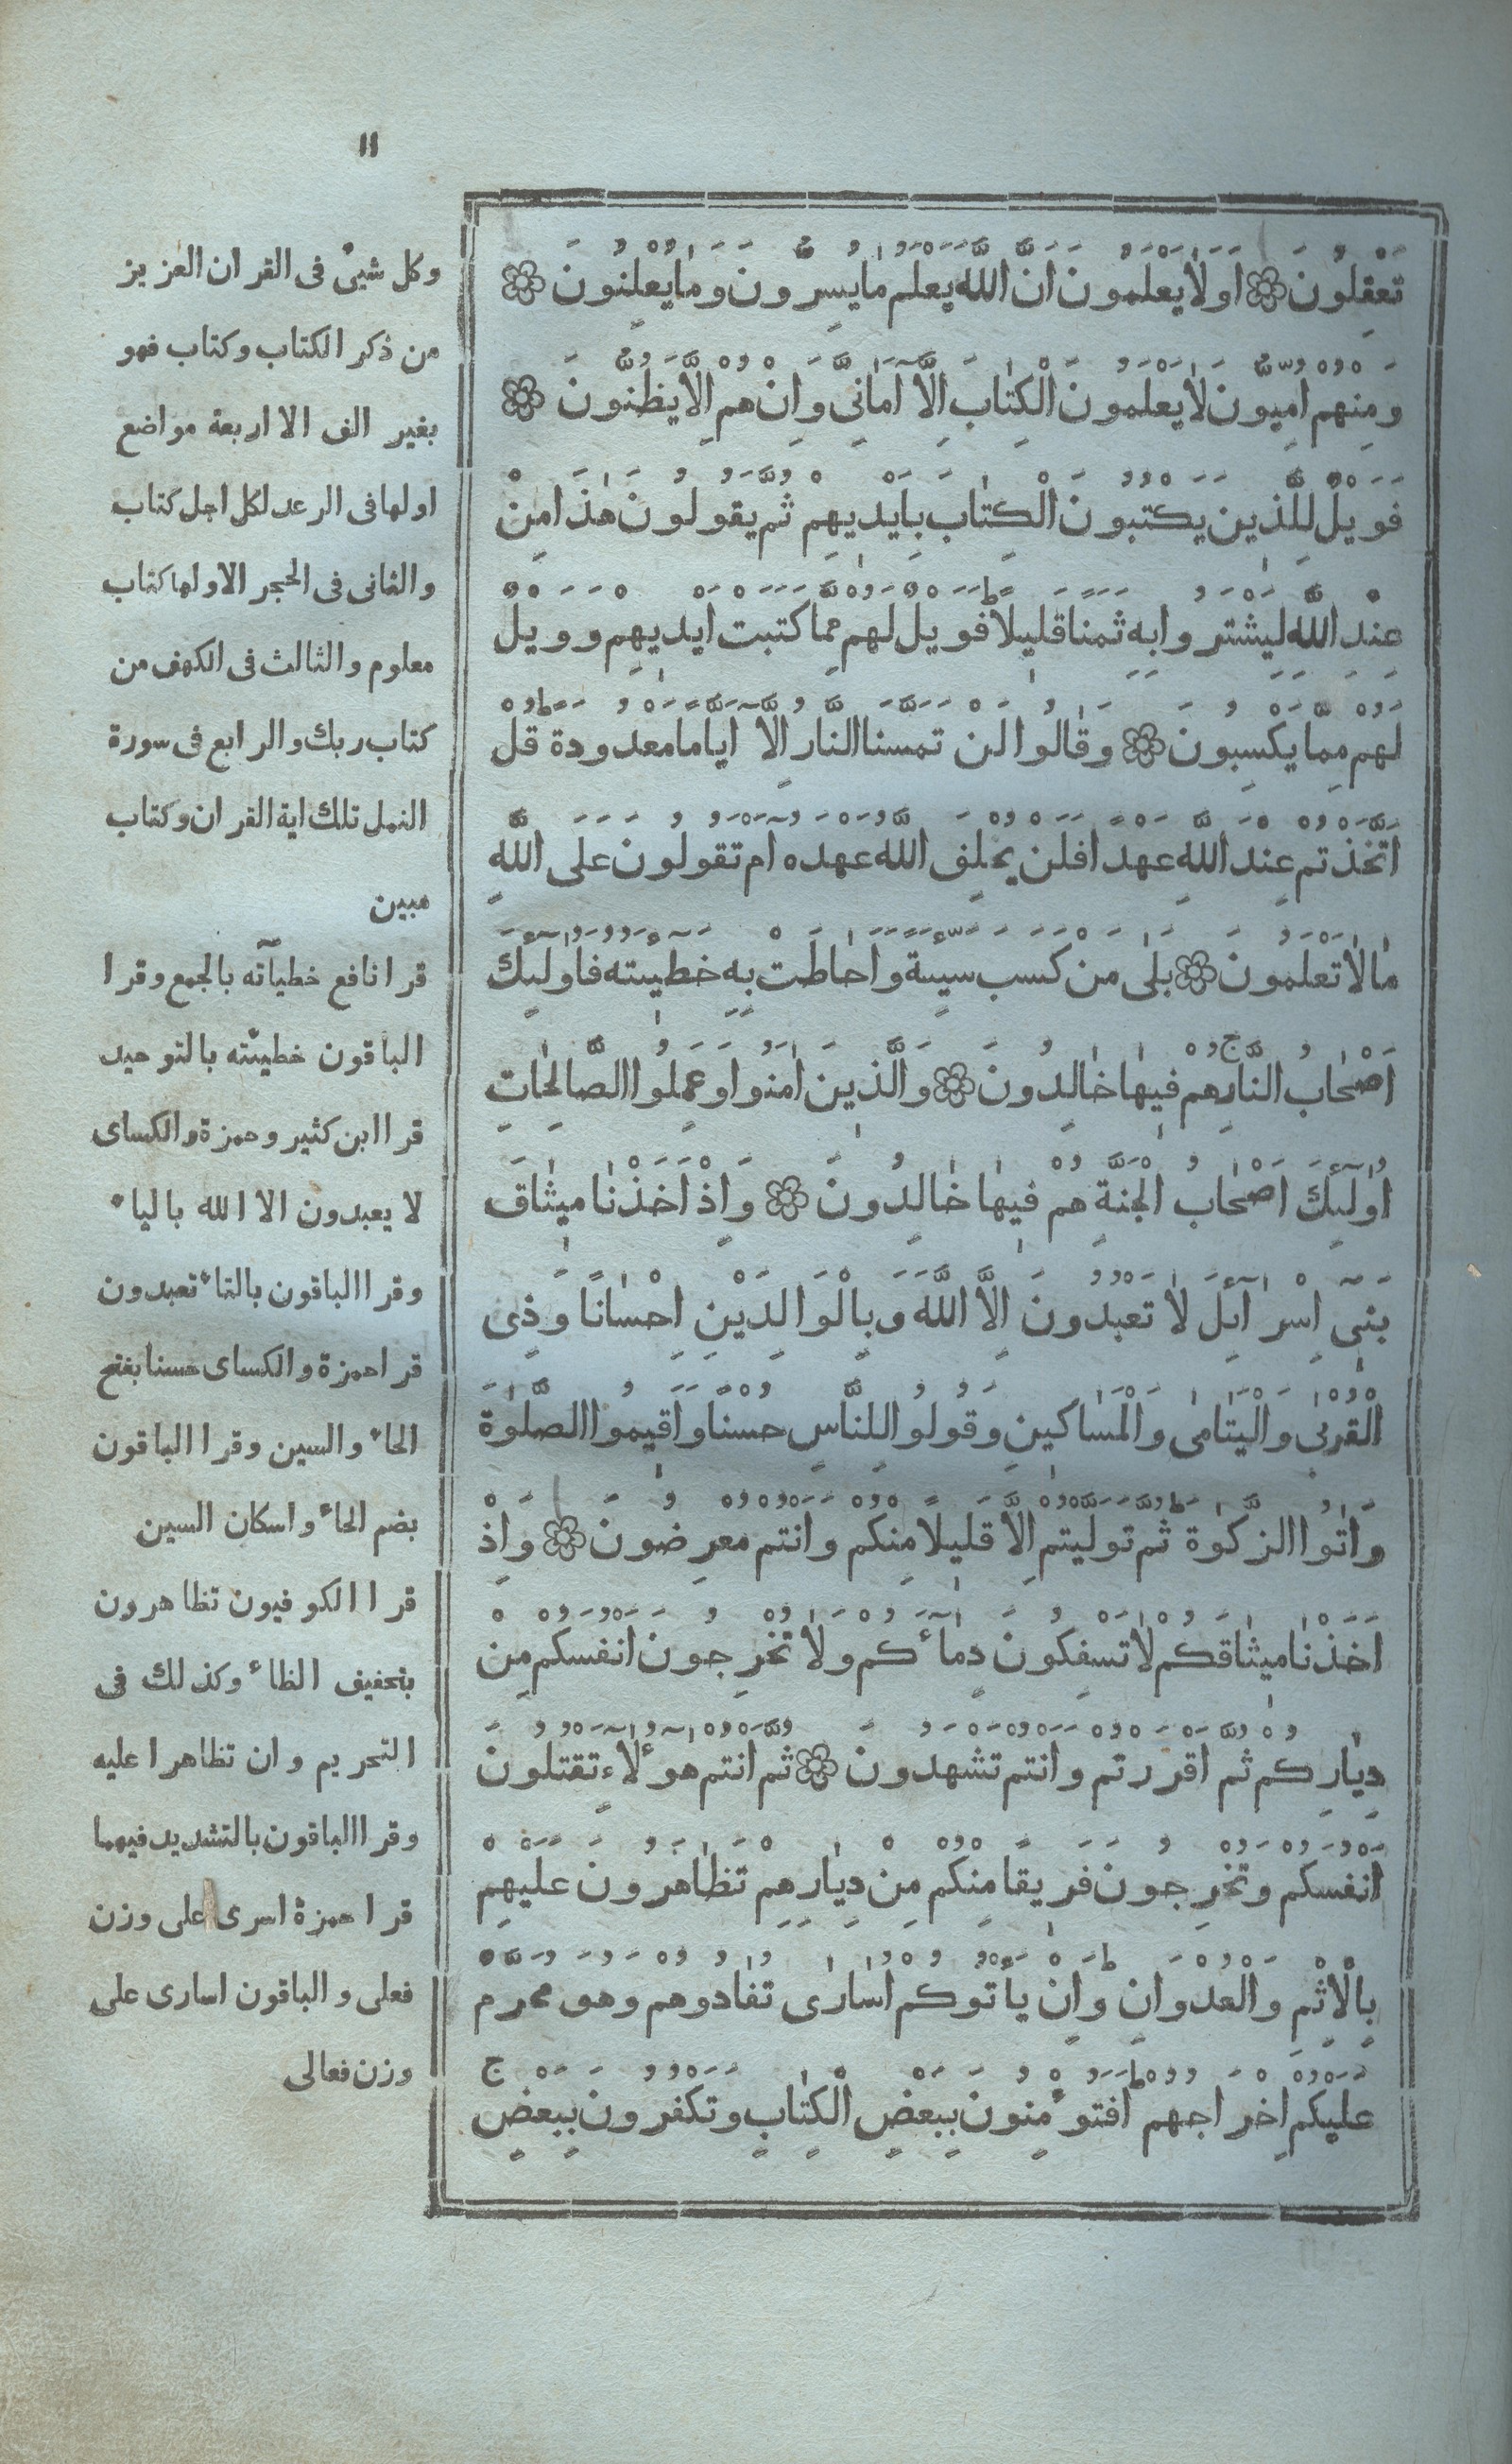 ١١
تَعْقِلُونَ ۞ اَوَلَا يَعْلَمُونَ اَنَّ اللّٰهَ يَعْلَمُ مَا يُسِرُّونَ وَمَا يُعْلِنُونَ ۞
وَمِنْهُمْ اُمِّيُّونَ لَا يَعْلَمُونَ الْكِتَابَ اِلَّٓا اَمَانِيَّ وَاِنْ هُمْ اِلَّا يَظُنُّونَ ۞
فَوَيْلٌ لِلَّذِينَ يَكْتُبُونَ الْكِتَابَ بِاَيْدِيهِمْ ثُمَّ يَقُولُونَ هٰذَا مِنْ
عِنْدِ اللّٰهِ لِيَشْتَرُوا بِهِ ثَمَنًا قَلِيلًا ۖ فَوَيْلٌ لَهُمْ مِمَّا كَتَبَتْ اَيْدِيهِمْ وَوَيْلٌ
لَهُمْ مِمَّا يَكْسِبُونَ ۞ وَقَالُوا لَنْ تَمَسَّنَا النَّارُ اِلَّٓا اَيَّامًا مَعْدُودَةً ۖ قُلْ
اَتَّخَذْتُمْ عِنْدَ اللّٰهِ عَهْدًا فَلَنْ يُخْلِفَ اللّٰهُ عَهْدَهُٓ اَمْ تَقُولُونَ عَلَى اللّٰهِ
مَا لَا تَعْلَمُونَ ۞ بَلٰى مَنْ كَسَبَ سَيِّئَةً وَاَحَاطَتْ بِهِ خَطِيئَتُهُ فَاُولٰٓئِكَ
اَصْحَابُ النَّارِ ۚ هُمْ فِيهَا خَالِدُونَ ۞ وَالَّذِينَ اٰمَنُوا وَعَمِلُوا الصَّالِحَاتِ
اُولٰٓئِكَ اَصْحَابُ الْجَنَّةِ هُمْ فِيهَا خَالِدُونَ ۞ وَاِذْ اَخَذْنَا مِيثَاقَ
بَنِٓي اِسْرَآئِلَ لَا تَعْبُدُونَ اِلَّا اللّٰهَ وَبِالْوَالِدَيْنِ اِحْسَانًا وَذِي
الْقُرْبٰى وَالْيَتَامٰى وَالْمَسَاكِينِ وَقُولُوا لِلنَّاسِ حُسْنًا وَاَقِيمُوا الصَّلٰوةَ
وَاٰتُوا الزَّكٰوةَ ۖ ثُمَّ تَوَلَّيْتُمْ اِلَّا قَلِيلًا مِنْكُمْ وَاَنْتُمْ مُعْرِضُونَ ۞ وَاِذْ
اَخَذْنَا مِيثَاقَكُمْ لَا تَسْفِكُونَ دِمَآءَكُمْ وَلَا تُخْرِجُونَ اَنْفُسَكُمْ مِنْ
دِيَارِكُمْ ثُمَّ اَقْرَرْتُمْ وَاَنْتُمْ تَشْهَدُونَ ۞ ثُمَّ اَنْتُمْ هٰٓؤُلَآءِ تَقْتُلُونَ
اَنْفُسَكُمْ وَتُخْرِجُونَ فَرِيقًا مِنْكُمْ مِنْ دِيَارِهِمْ تَظَاهَرُونَ عَلَيْهِمْ
بِالْاِثْمِ وَالْعُدْوَانِ ۖ وَاِنْ يَأْتُوكُمْ اُسَارٰى تُفَادُوهُمْ وَهُوَ مُحَرَّمٌ
عَلَيْكُمْ اِخْرَاجُهُمْ ۖ اَفَتُؤْمِنُونَ بِبَعْضِ الْكِتَابِ وَتَكْفُرُونَ بِبَعْضٍ ۚ
وكل شيئ فى القران العزيز
من ذكر الكتاب وكتاب فهو
بغير الف الا اربعة مواضع
اولها فى الرعد لكل اجل كتاب
والثانى فى الحجر الا ولها كتاب
معلوم والثالث فى الكهف من
كتاب ربك والرابع فى سورة
النمل تلك اية القران وكتاب
مبين
قرا نافع خطيآته بالجمع وقرا
الباقون خطيئته بالتوحيد
قرا ابن كثير وحمزة والكساى
لا يعبدون الا الله بالياء
وقرا الباقون بالتاء تعبدون
قرا حمزة والكساى حسنا بفتح
الحاء والسين وقرا الباقون
بضم الحاء واسكان السين
قرا الكوفيون تظاهرون
بتخفيف الظاء وكذلك فى
التحريم وان تظاهرا عليه
وقرا الباقون بالتشديد فيهما
قرا حمزة اسرى على وزن
فعلى والباقون اسارى على
وزن فعالى